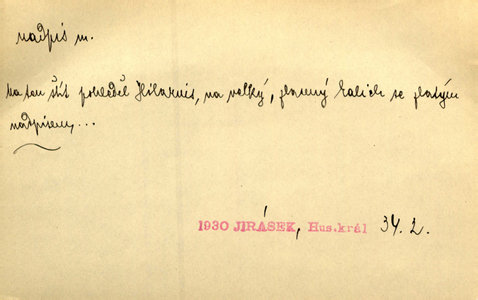 nadpis m.
Na ten štít pohleděl Hilarius, na velký, zlatý kalich se zlatým
nadpisem,...
1930 JIRÁSEK, Hus.král 34.2.